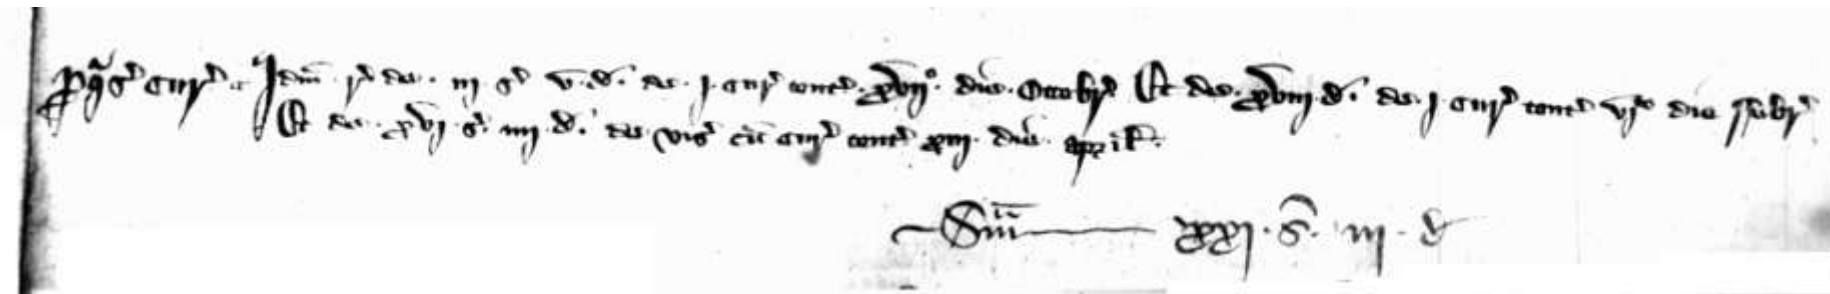 Pqas' Cur' . Idm r' de . iij s' v . d' . de . j . cur' tent' . xvij° . die . Octobr' Et de . xviij . d' . de . j . cur' tent' vjto die ffebr'
Et de . xvj . s' . iiij . d' . de vis' cu cur' tent' xiij . die . April' .
Sm xxj . s . iij . d